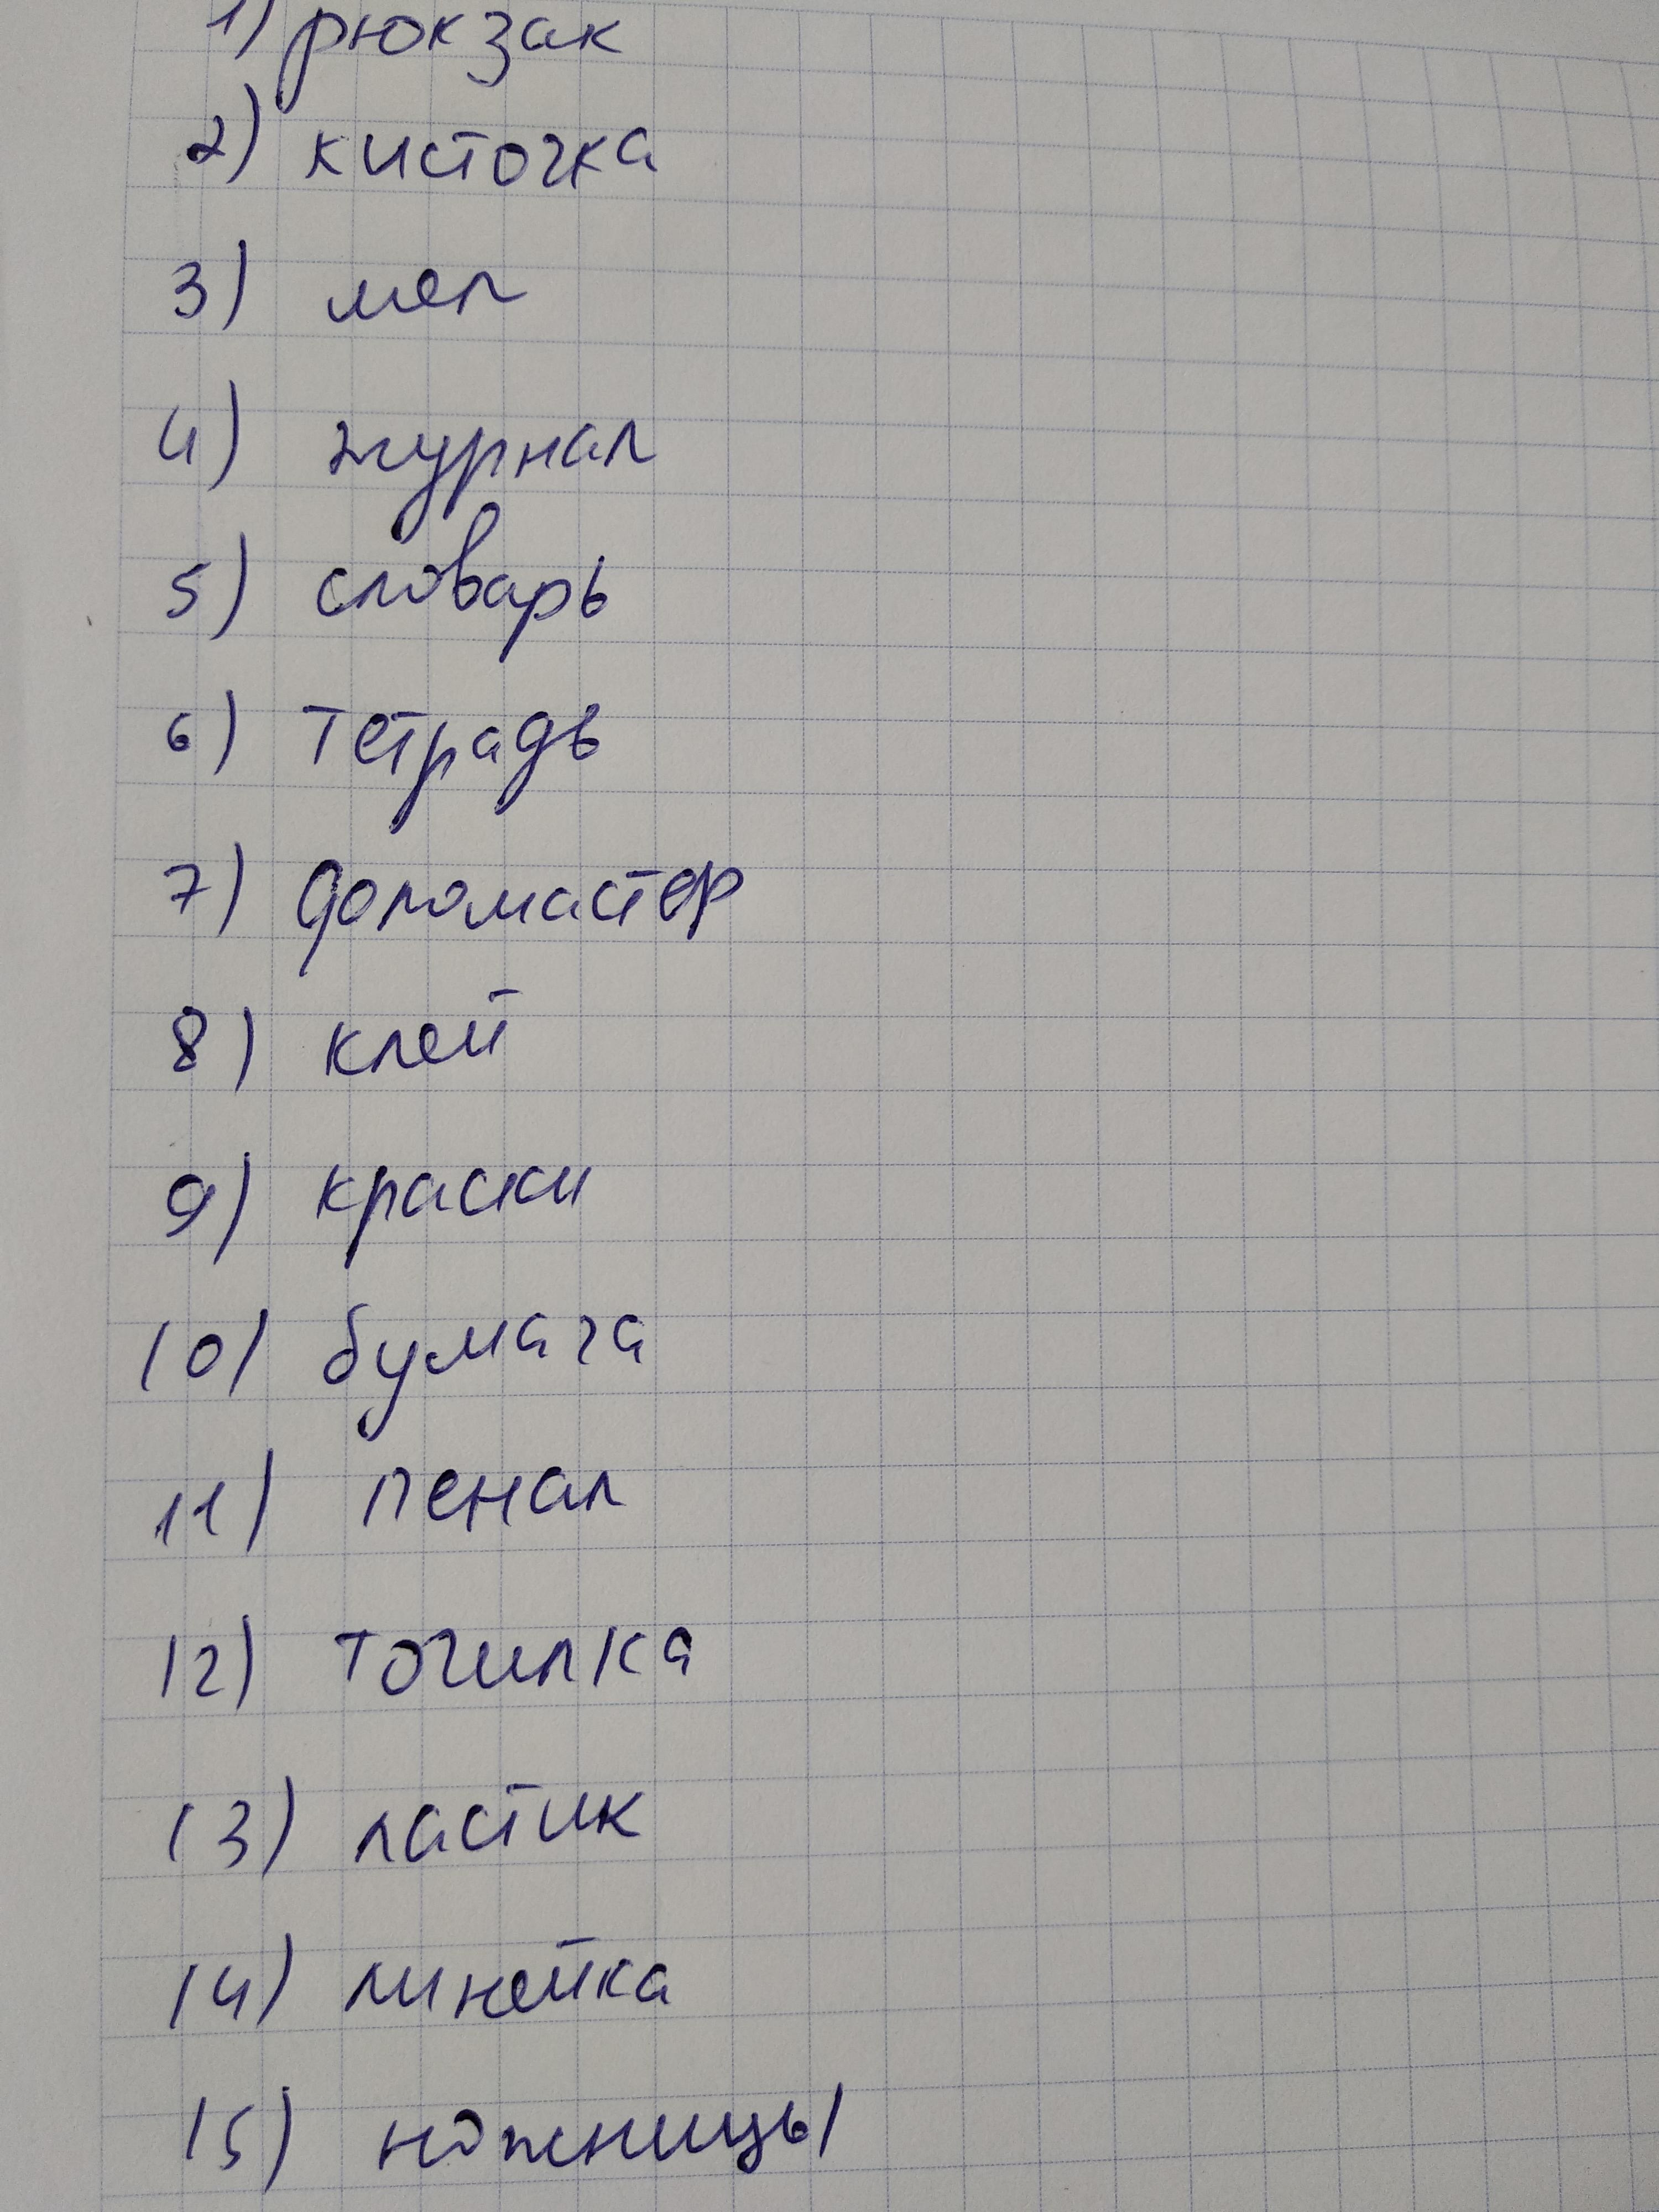 1) рюкзак
2) кисточка
3) мел
4) журнал
5) словарь
6) тетрадь
7) доломастер
8) клей
9) краски
10) бумага
11) пенал
12) точилка
13) ластик
14) линейка
15) ножницы